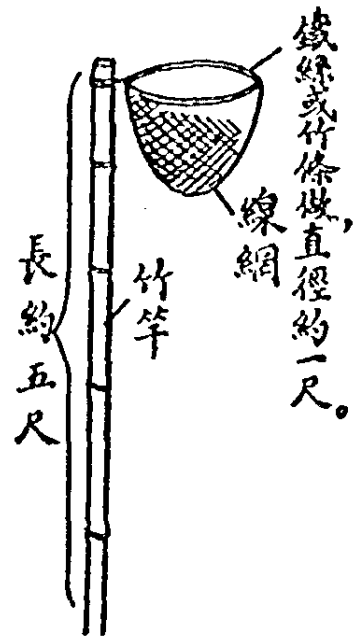 鐵絲或竹條做，直徑約一尺。
線網
竹竿
長約五尺